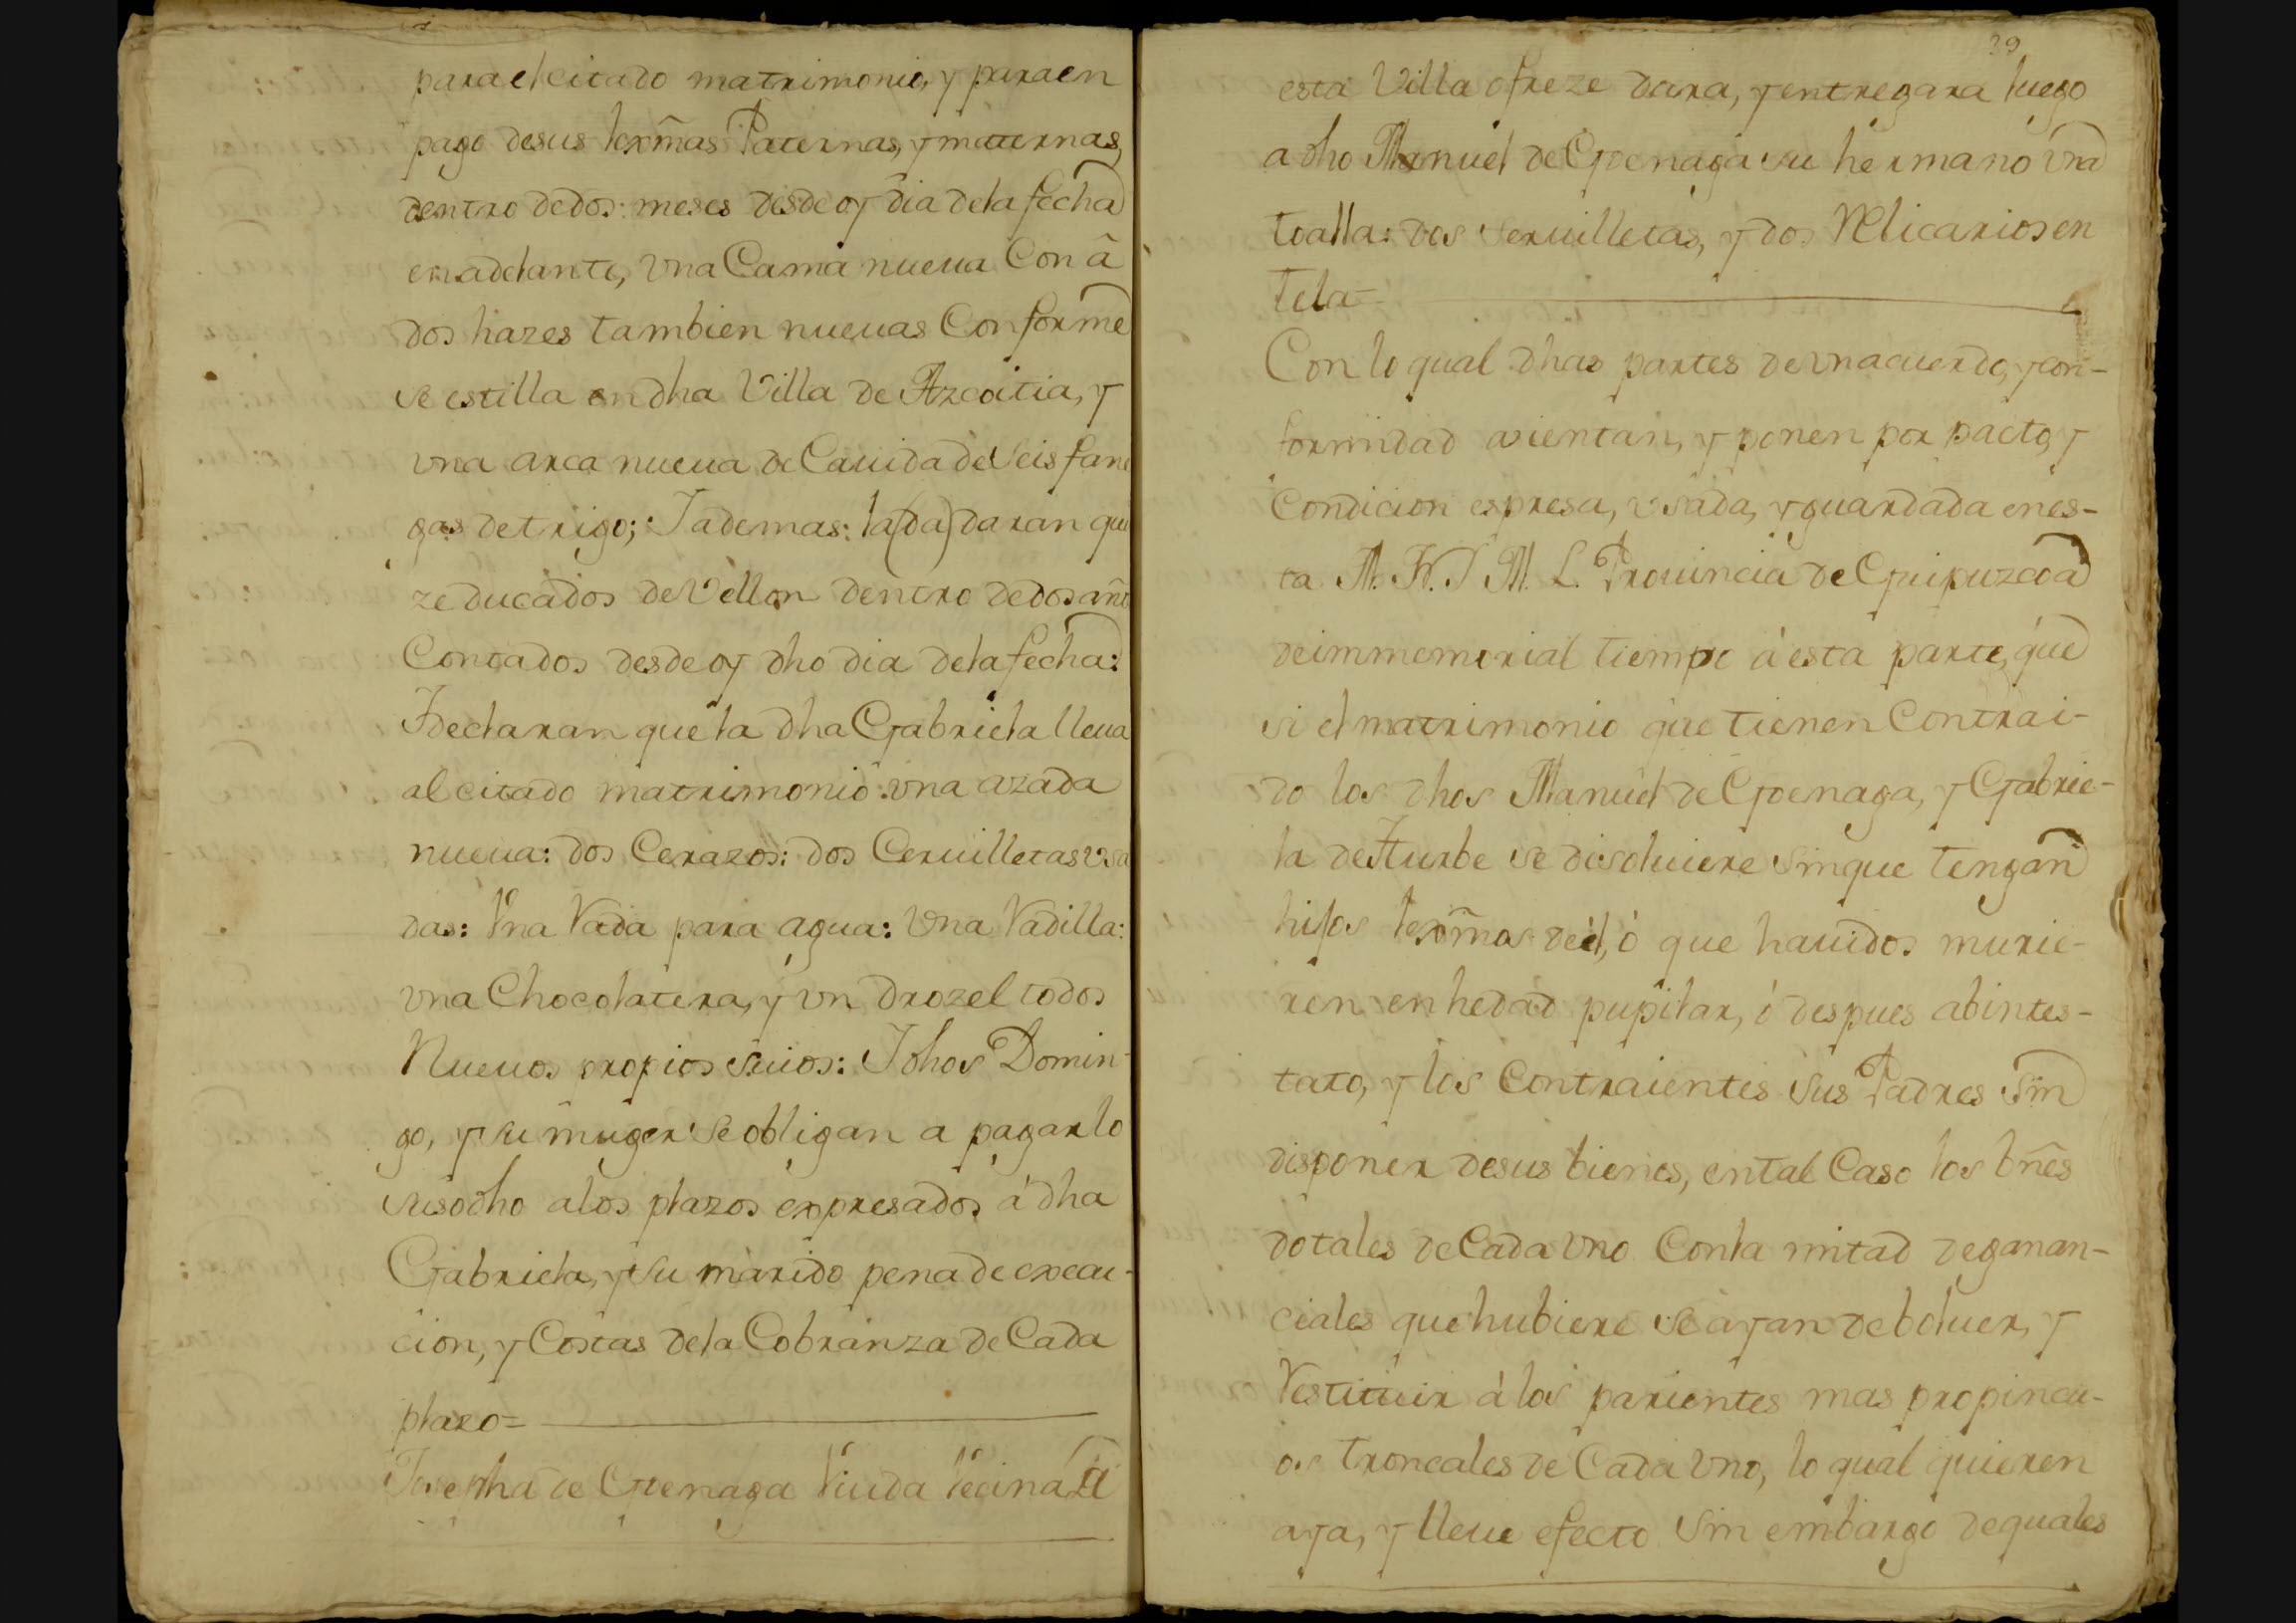 para el citado matrimonio, y para en
pago de sus lexm̃as Paternas, y maternas,
dentro de dos: meses desde oy dia dela fecha
en adelante, vna Cama nueua Con â
dos hazes tambien nueuas Conforme
se estilla en dha Villa de Azcoitia, y
vna arca nueua de Cauida de Seis fane
gas de trigo; Y ademas: la (da) daran qui
ze ducados de Vellon dentro de dos añ
Contados desde oy dho dia dela fecha:
Y declaran que la dha Gabriela lleua
al citado matrimonio vna azada
nueua: dos Cerazos: dos Ceruilletas vsa
das: Vna Vada para agua: Vna Vadilla:
vna Chocolatera, y vn Drozel todos
Nueuos propios suios: Y dhos Domin-
go, y su muger se obligan a pagar lo
susodho a los plazos expresados á dha
Gabriela, y su marido pena de execu-
cion, y Costas dela Cobranza de Cada
plazo=
Josepha de Goenaga Viuda Vecina de
39
esta Villa ofreze dara, y entregara luego
a dho Manuel de Goenaga su hermano vna
toalla: dos Seruilletas, y dos Relicarios en
tela=
Con lo qual dhas partes de vn acuerdo, y con-
formidad asientan, y ponen por pacto, y
Condicion espresa, vsada, y guardada en es-
ta M. N. Y M. L. Prouincia de Guipuzcoa
de immemorial tiempo á esta parte, que
si el matrimonio que tienen Contrai-
do los dhos Manuel de Goenaga, y Gabrie-
la de Iturbe se disoluiere sin que tengan
hijos lexm̃os de él, ó que hauidos murie-
ren en hedad pupilar, ó despues abintes-
tato, y los Contraientes sus Padres sin
disponer de sus bienes, en tal Caso los bñes
dotales de Cada vno Con la mitad de ganan-
ciales que hubiere se ayan de boluer, y
Restituir á los parientes mas propincu-
os troncales de Cada vno, lo qual quieren
aya, y lleue efecto sin embargo de quales